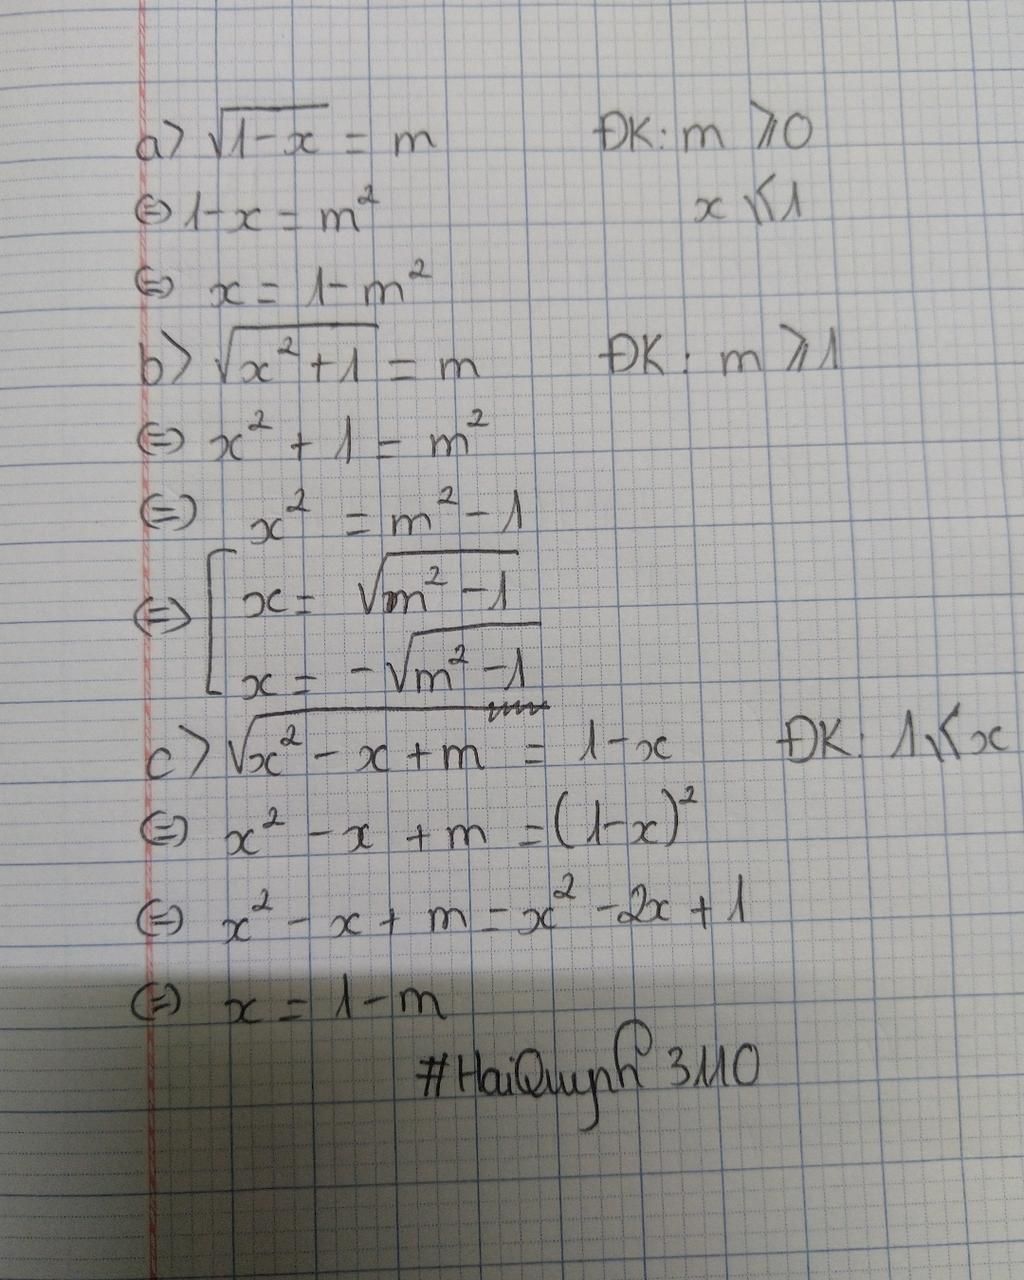 a> √(1-x) = m ĐK: m ⩾ 0
⇔ 1-x = m² x ⩽ 1
⇔ x = 1-m²
b> √(x²+1) = m ĐK: m ⩾ 1
⇔ x² + 1 = m²
⇔ x² = m² - 1
⇔ [ x = √(m² - 1)
x = -√(m² - 1)
c> √(x² - x + m) = 1-x ĐK: 1 ⩽ x
⇔ x² - x + m = (1-x)²
⇔ x² - x + m = x² - 2x + 1
⇔ x = 1 - m
#HaiQuynh 3110